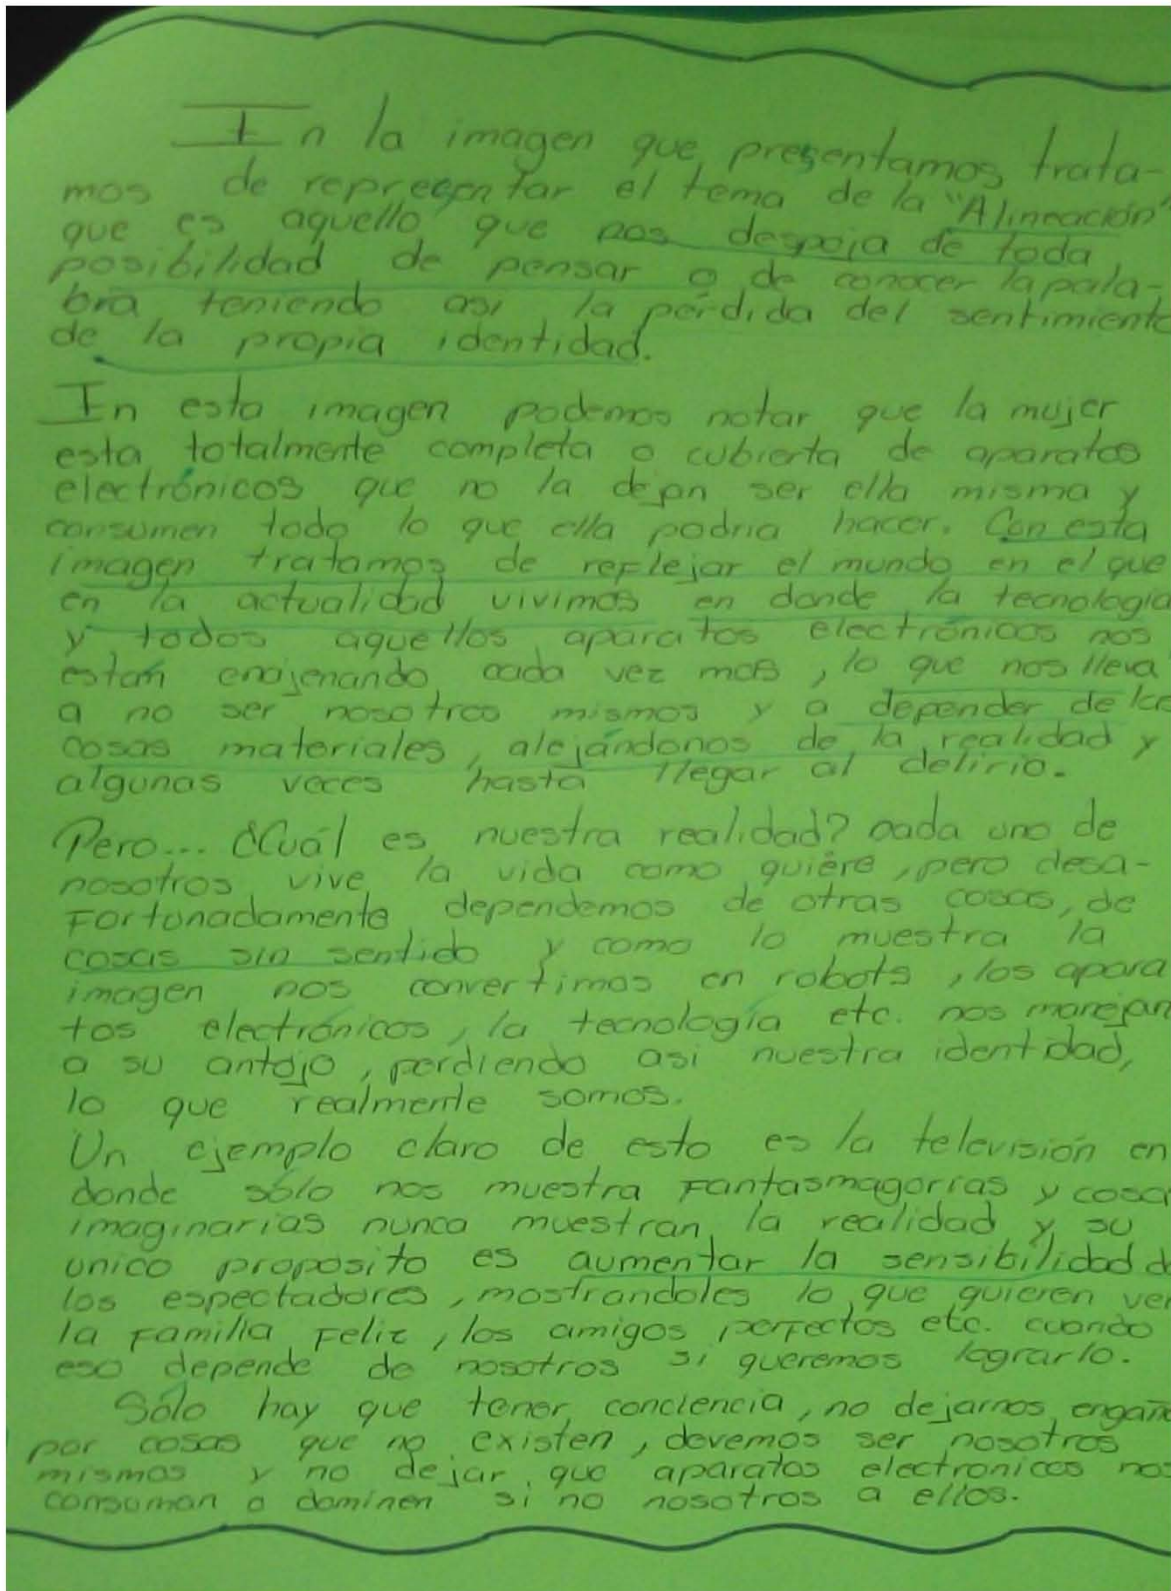 En la imagen que presentamos trata-
mos de representar el tema de la "Alineación"
que es aquello que nos despoja de toda
posibilidad de pensar o de conocer la pala-
bra teniendo asi la pérdida del sentimiento
de la propia identidad.
En esta imagen podemos notar que la mujer
esta totalmente completa o cubierta de aparatos
electrónicos que no la dejan ser ella misma y
consumen todo lo que ella podria hacer. Con esta
imagen tratamos de reflejar el mundo en el que
en la actualidad vivimos en donde la tecnologia
y todos aquellos aparatos electrónicos nos
están enajenando cada vez mas, lo que nos lleva
a no ser nosotros mismos y a depender de las
cosas materiales, alejándonos de la realidad y
algunas veces hasta llegar al delirio.
Pero... ¿Cuál es nuestra realidad? cada uno de
nosotros vive la vida como quiere, pero desa-
Fortunadamente dependemos de otras cosas, de
cosas sin sentido y como lo muestra la
imagen nos convertimos en robots, los apara
tos electrónicos, la tecnología etc. nos manejan
a su antojo, perdiendo asi nuestra identidad,
lo que realmente somos.
Un ejemplo claro de esto es la televisión en
donde sólo nos muestra Fantasmagorras y cosa
imaginarias nunca muestran la realidad y su
unico proposito es aumentar la sensibilidad d
los espectadores, mostrandoles lo que quieren ver
la Familia Feliz, los amigos perFectos etc. cuando
eso depende de nosotros si queremos lograrlo.
Sólo hay que tener conciencia, no dejarnos engaña
por cosas que no existen, devemos ser nosotros
mismos y no dejar que aparatos electronicos nos
consuman o dominen si no nosotros a ellos.